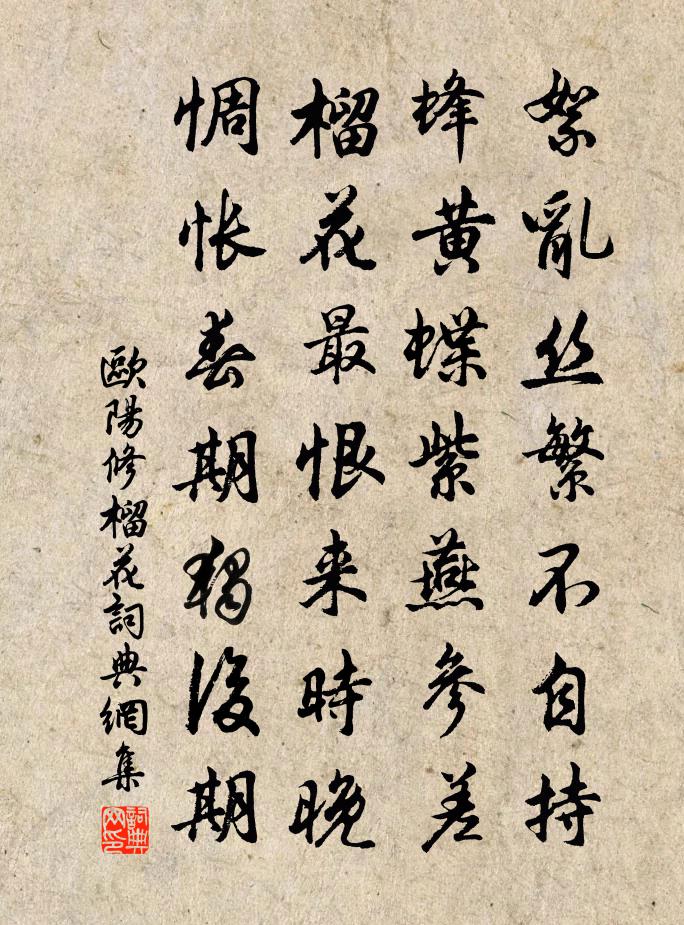 絮亂丝繁不自持
蜂黄蝶紫燕參差
榴花最恨来時晚
惆怅春期獨後期
歐陽修榴花詞典網集
詞典网印